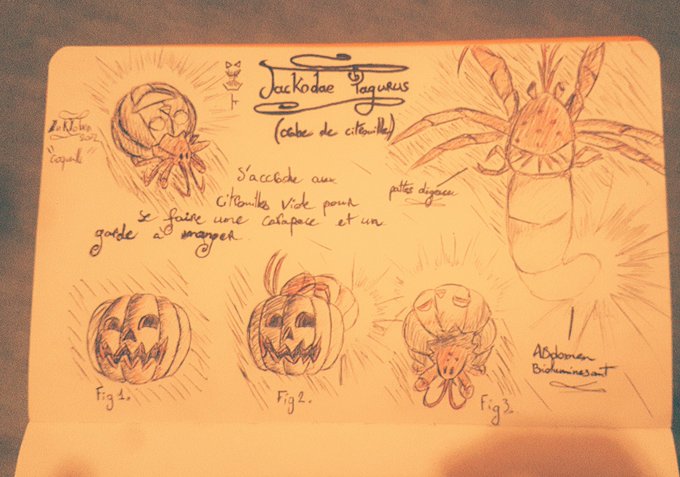 Jackodae Pagurus
(crabe de citrouille)
InkTober
"Coquille"
S'accroche aux
citrouilles vide pour
se faire une carapace et un
garde à manger
pattes
Abdomen
Bioluminescent
Fig 1.
Fig 2.
Fig 3.